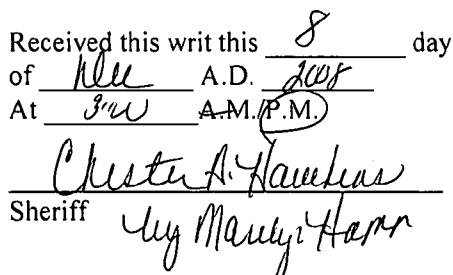 Received this writ this 8 day
of Dec A.D. 2008
At 3:00 A.M./P.M.
Chester A. Hawkins
Sheriff by Marilyn Hamm